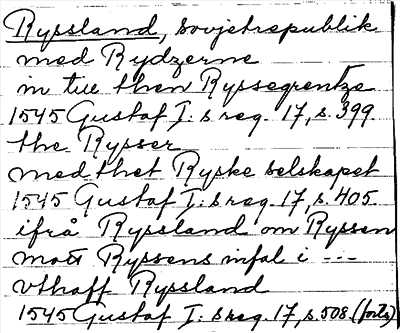 Ryssland, Sovjetrepublik
med Rydzerne
in till then Ryssegrentze
1545 Gustaf I:s reg. 17, s. 399.
the Rysser
med thet Ryske selskapet
1545 Gustaf I:s reg. 17, s. 405.
ifrå Ryssland om Ryssen
mott Ryssens infal i ---
vthaff Ryssland
1545 Gustaf I:s reg. 17, s. 508 (forts)